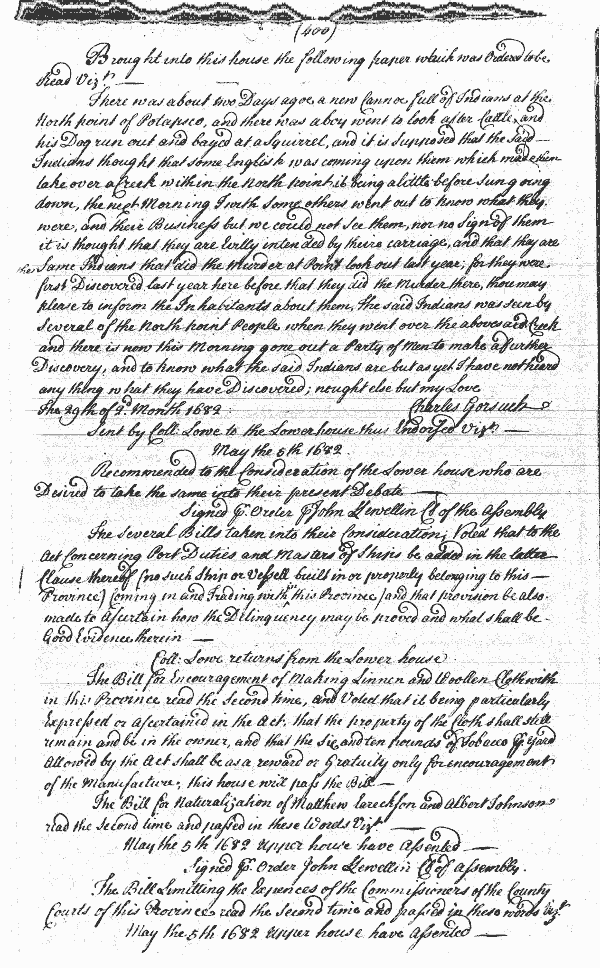 (400)
Brought into this house the following paper which was Ordered to be
Read Vizt
There was about two Days agoe a new Cannoe full of Indians at the
North point of Potapsco, and there was a boy went to look after Cattle, and
his Dog run out and bayed at a Squirrel, and it is Supposed that the said
Indians thought that some English was coming upon them which made them
take over a Creek within the North point it being a little before Sun going
down, the next Morning I with Some others went out to know what they
were, and their Business but we could not See them, nor no Sign of them
it is thought that they are Evilly intended by their carriage, and that they are
the Same Indians that did the Murder at Point look out last year; for they were
first Discovered last year here before that they did the Murder there, thou may
please to inform the Inhabitants about them, the said Indians was seen by
Several of the North point People when they went over the abovesaid Creek
and there is now this Morning gone out a Party of Men to make a further
Discovery, and to know what the said Indians are but as yet I have not heard
any thing what they have Discovered; nought else but my Love
The 29th of 2d Month 1682 Charles Gorsuch
Sent by Coll: Lowe to the Lower house thus Endorsed Vizt
May the 5th 1682.
Recommended to the Consideration of the Lower house who are
Desired to take the same into their present Debate
Signed p. Order p John Llewellin Cl of the Assembly
The Several Bills taken into their Consideration, Voted that to the
Act Concerning Port Duties and Masters of Ships be added in the latter
Clause thereof (no such Ship or Vessell built in or properly belonging to this
Province) Coming in and Trading with in this Province) and that provision be also
made to Ascertain how the Delinquency may be proved and what shall be
Good Evidence therein
Coll: Lowe returns from the Lower house
The Bill for Encouragement of Making Linnen and Woollen Cloth with
in this Province read the Second time, and Voted that it being particularly
Expressed or Ascertained in the Act. that the property of the Cloth shall still
remain and be in the owner, and that the Six and ten pounds of Tobacco p yard
Allowed by the Act shall be as a reward or Gratuity only for encouragement
of the Manufacture, this house will pass the Bill
The Bill for Naturalization of Matthew Ereckson and Albert Johnson
read the Second time and passed in these Words Vizt
May the 5th 1682 Upper house have Assented
Signed p. Order John Llewellin Cl of Assembly.
The Bill Limitting the Expences of the Commissioners of the County
Courts of this Province read the Second time and passed in these words Vizt
May the 5th 1682 Upper house have Assented